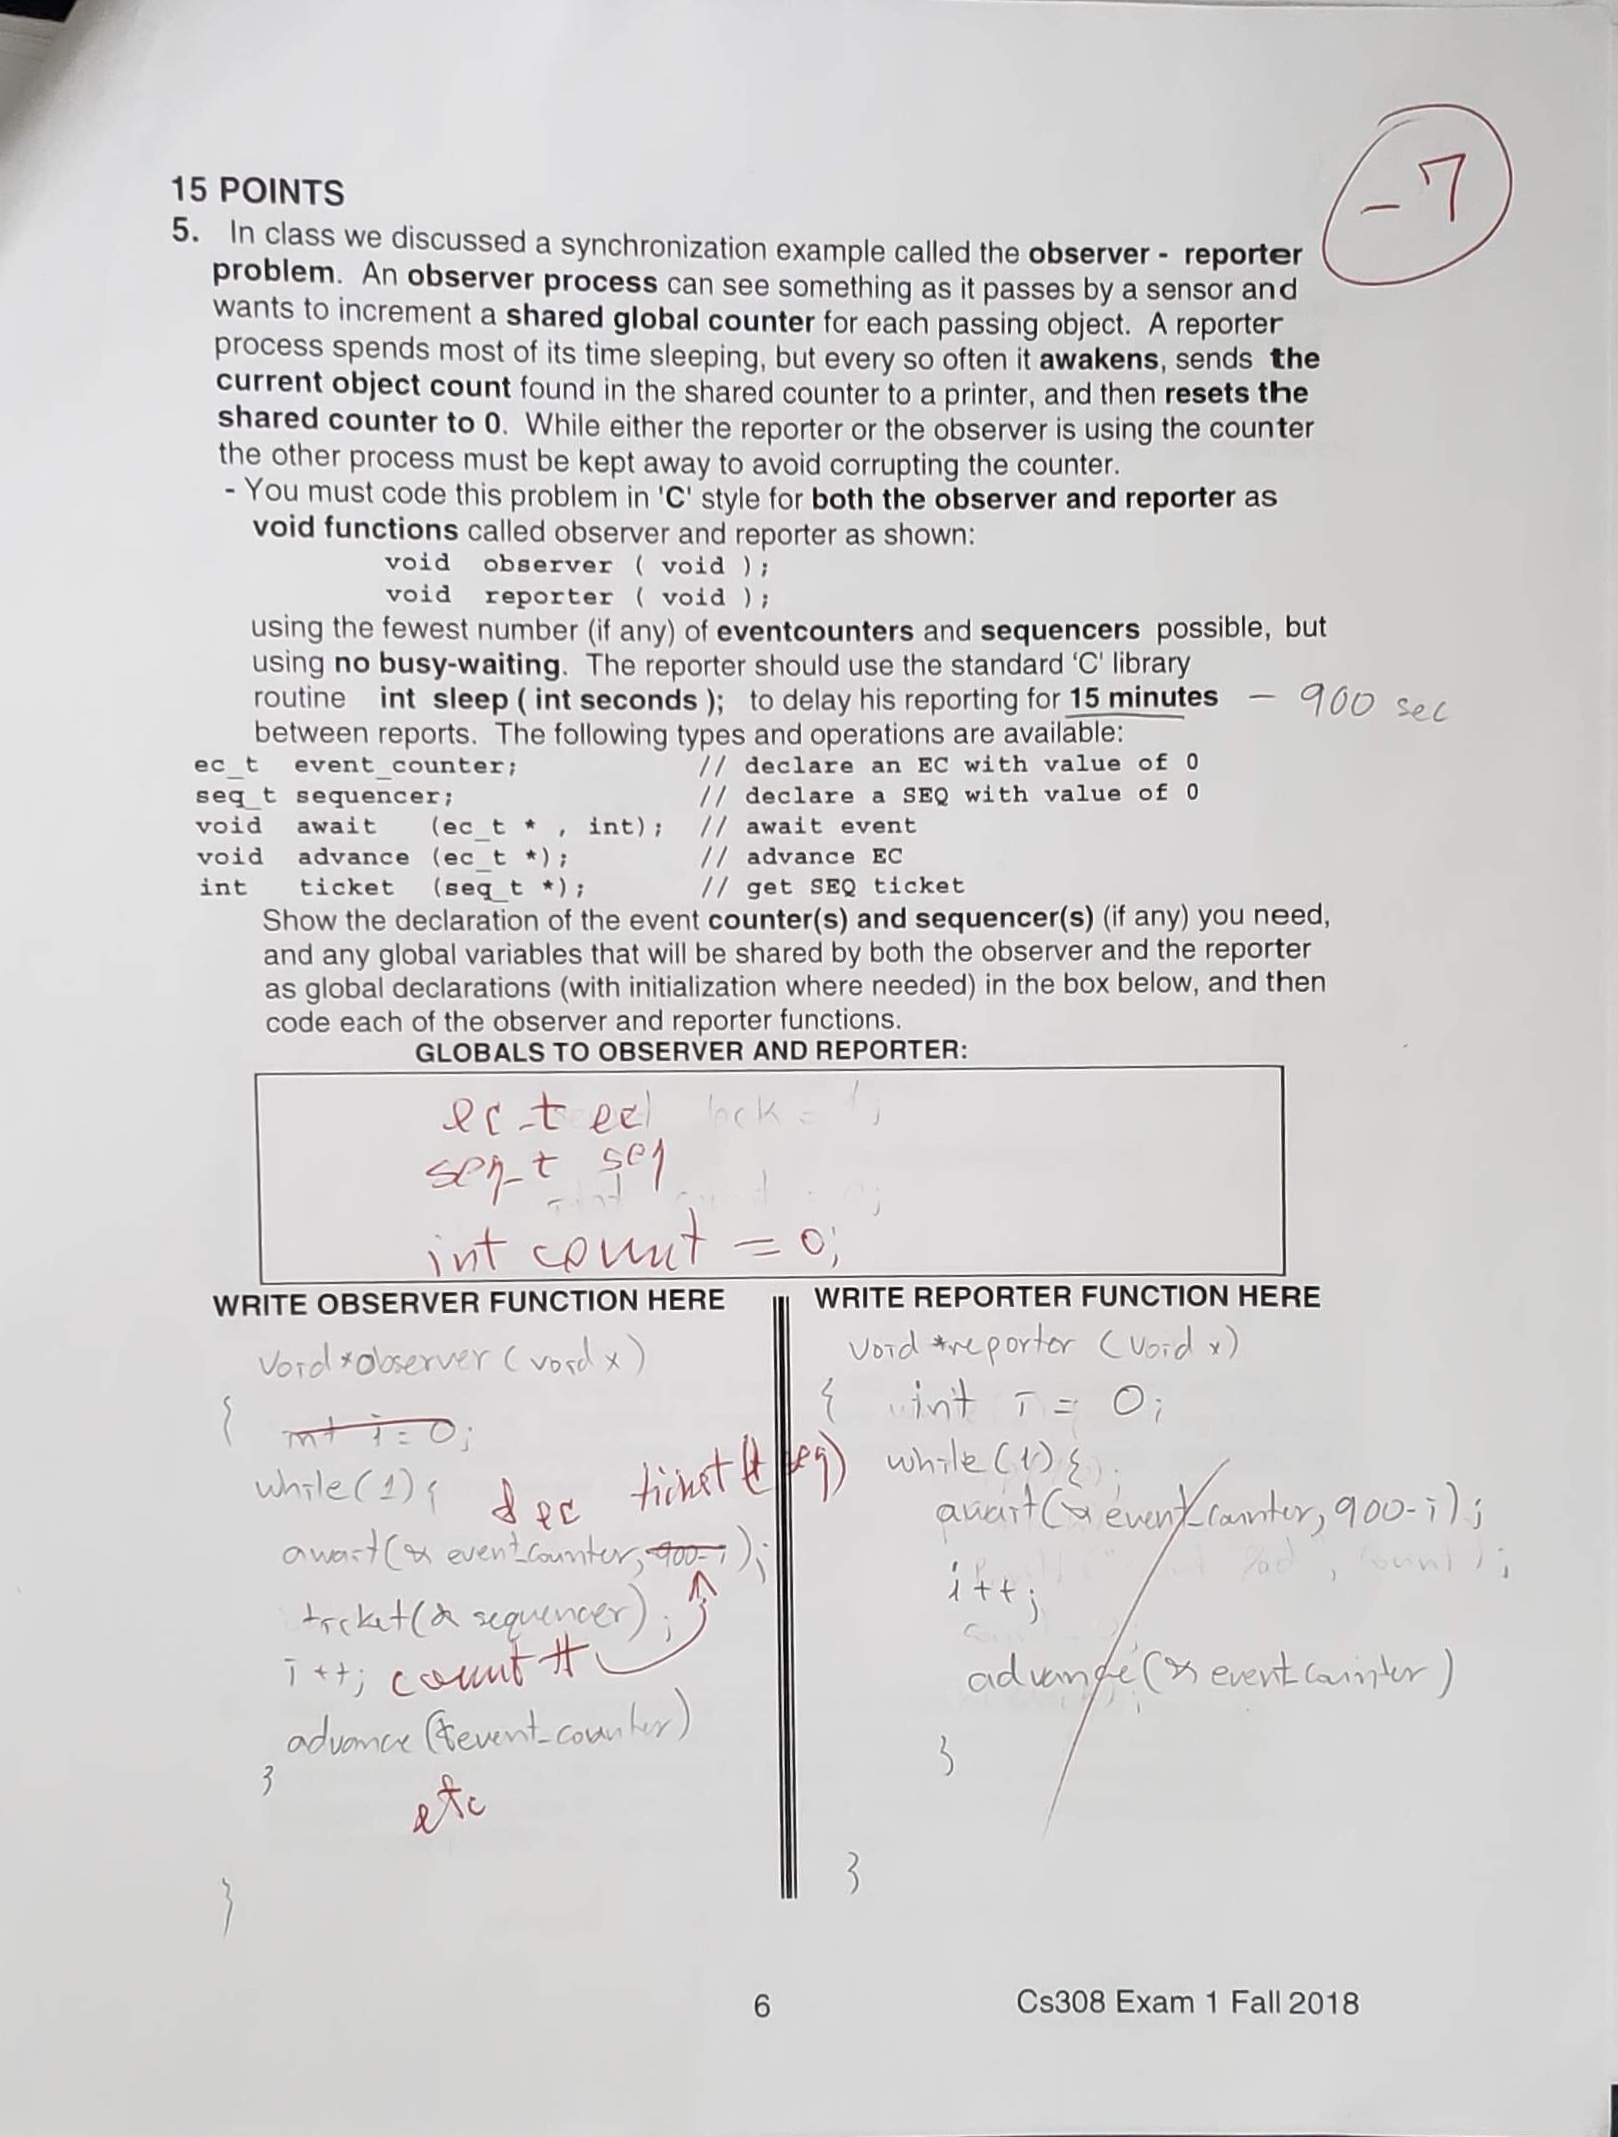 -7
15 POINTS
5. In class we discussed a synchronization example called the observer - reporter
problem. An observer process can see something as it passes by a sensor and
wants to increment a shared global counter for each passing object. A reporter
process spends most of its time sleeping, but every so often it awakens, sends the
current object count found in the shared counter to a printer, and then resets the
shared counter to 0. While either the reporter or the observer is using the counter
the other process must be kept away to avoid corrupting the counter.
- You must code this problem in 'C' style for both the observer and reporter as
void functions called observer and reporter as shown:
void observer ( void );
void reporter ( void );
using the fewest number (if any) of eventcounters and sequencers possible, but
using no busy-waiting. The reporter should use the standard 'C' library
routine int sleep ( int seconds ); to delay his reporting for 15 minutes - 900 sec
between reports. The following types and operations are available:
ec_t event_counter; // declare an EC with value of 0
seq_t sequencer; // declare a SEQ with value of 0
void await (ec_t * , int); // await event
void advance (ec_t *); // advance EC
int ticket (seq_t *); // get SEQ ticket
Show the declaration of the event counter(s) and sequencer(s) (if any) you need,
and any global variables that will be shared by both the observer and the reporter
as global declarations (with initialization where needed) in the box below, and then
code each of the observer and reporter functions.
GLOBALS TO OBSERVER AND REPORTER:
ec_t ec
seq_t seq
int count = 0;
WRITE OBSERVER FUNCTION HERE
void *observer (void x)
{ int i = 0;
while(1) {
&ec ticket(& seq)
await(& event_counter, 900-i);
ticket(& sequencer);
i++; count ++
advance (&event_counter)
}
etc
}
WRITE REPORTER FUNCTION HERE
void *reporter (void x)
{ int i = 0;
while(1) {
await(& event_counter, 900-i);
i++;
advance(& event_counter)
}
}
6
Cs308 Exam 1 Fall 2018